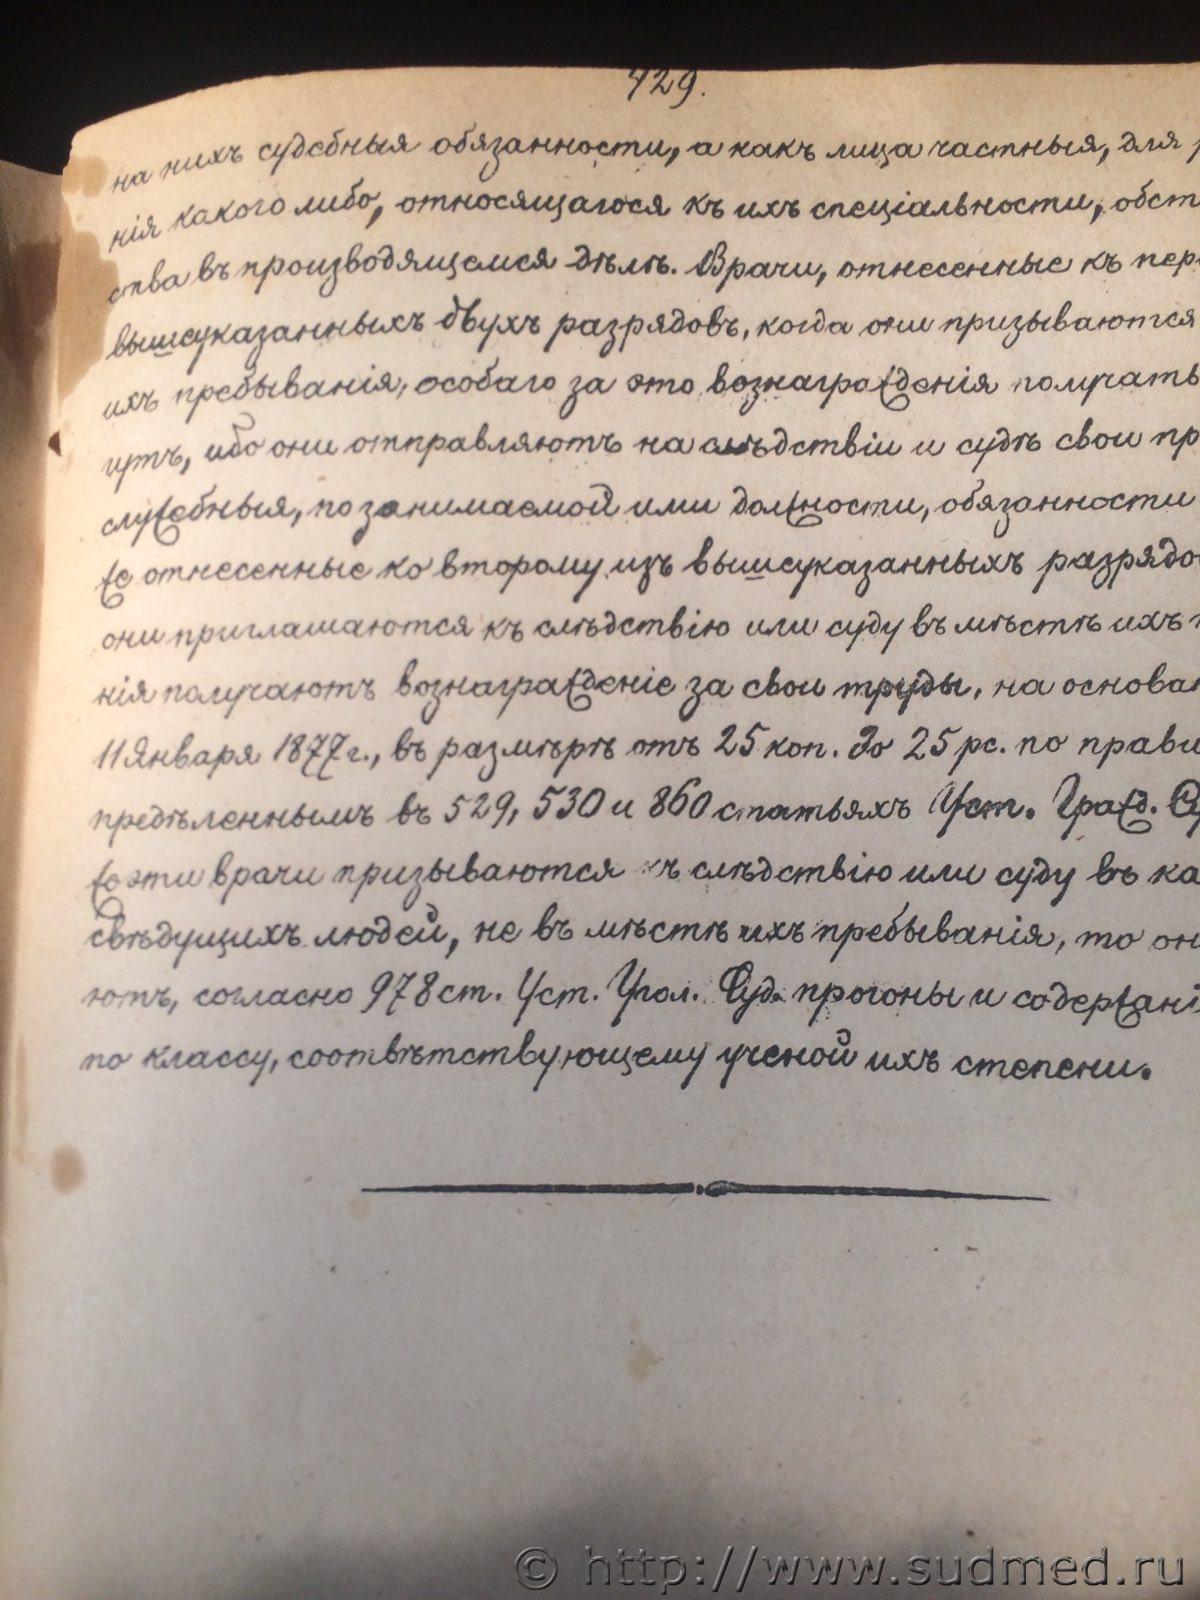 429.
на нихъ судебныя обязанности, а какъ лица частныя, для
нія какого либо, относящагося къ ихъ спеціальности, обст
ства въ производящемся дѣлѣ. Врачи, отнесенные къ пер
вышеуказанныхъ двухъ разрядовъ, когда они призываются
ихъ пребыванія, особаго за это вознагражденія получать
гутъ, ибо они отправляютъ на слѣдствіи и судѣ свои пр
служебныя, по занимаемой ими должности, обязанности
же отнесенные ко второму изъ вышеуказанныхъ разрядо
они приглашаются къ слѣдствію или суду въ мѣстѣ ихъ
нія получаютъ вознагражденіе за свои труды, на основан
11 Января 1877 г., въ размѣрѣ отъ 25 коп. до 25 рс. по прави
предѣленнымъ въ 529, 530 и 860 статьяхъ Уст. Гражд. Су
же эти врачи призываются къ слѣдствію или суду въ ка
свѣдущихъ людей, не въ мѣстѣ ихъ пребыванія, то он
ютъ, согласно 978 ст. Уст. Угол. Суд. прогоны и содержані
по классу, соотвѣтствующему ученой ихъ степени.
© http://www.sudmed.ru